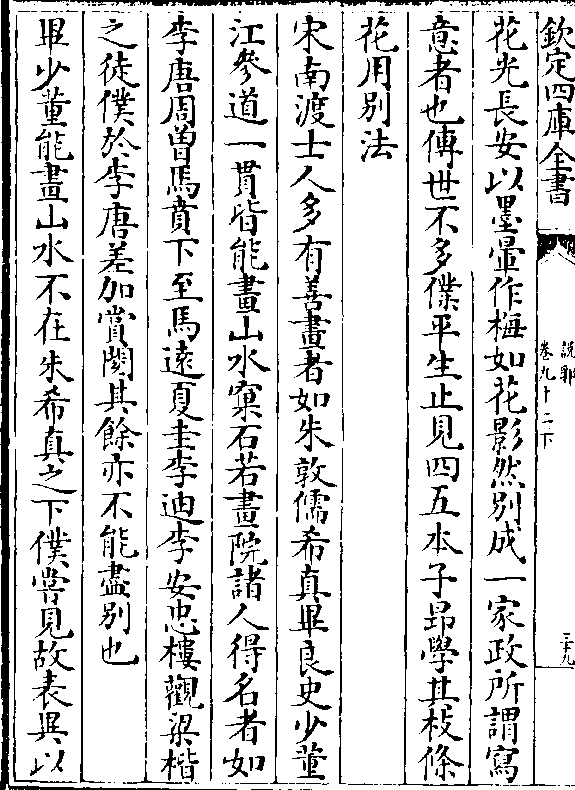 欽定四庫全書
說郛
卷九十二下
三十九
花光長安以墨暈作梅如花影然別成一家政所謂寫
意者也傳世不多僕平生止見四五本子昂學其枝條
花用別法
宋南渡士人多有善畫者如朱敦儒希真畢良史少董
江參道一貫皆能畫山水窠石若畫院諸人得名者如
李唐周曾馬賁下至馬遠夏圭李迪李安忠樓觀梁楷
之徒僕於李唐差加賞閱其餘亦不能盡別也
畢少董能畫山水不在朱希真之下僕嘗見故表異以